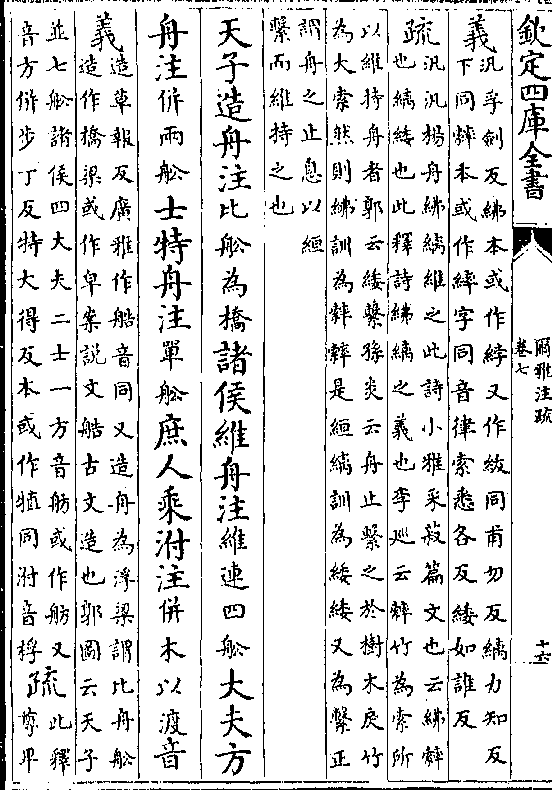 欽定四庫全書
爾雅注疏
卷七
十六
義汎孚劍反紼本或作綍又作紱同甫勿反縭力知反
下同䋁本或作繂字同音律索悉各反緌如誰反
疏汎汎楊舟紼縭維之此詩小雅采菽篇文也云紼䋁
也縭緌也此釋詩紼縭之義也李廵云䋁竹為索所
以維持舟者郭云緌繫孫炎云舟止繫之於樹木戾竹
為大索然則紼訓為䋁䋁是絙縭訓為緌緌又為繫正
謂舟之止息以絙
繫而維持之也
天子造舟注比舩為橋諸侯維舟注維連四舩大夫方
舟注併兩舩士特舟注單舩庶人乘泭注併木以渡音
義造草報反廣雅作艁音同又造舟為浮梁謂比舟舩
造作橋梁或作皁案說文艁古文造也郭圖云天子
並七舩諸侯四大夫二士一方音舫或作舫又
音方併步丁反特大得反本或作犆同泭音桴疏此釋
尊卑